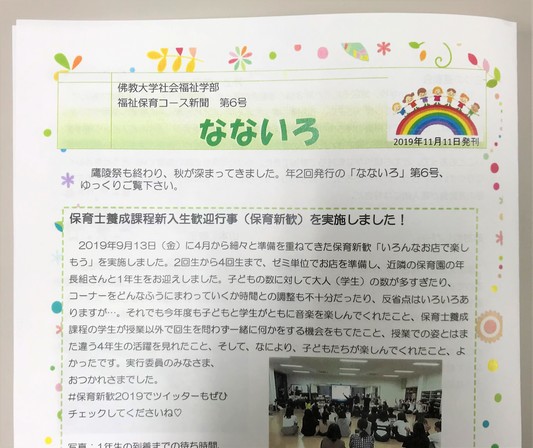 佛教大学社会福祉学部
福祉保育コース新聞　第6号
なないろ
2019年11月11日発刊
鷹陵祭も終わり、秋が深まってきました。年2回発行の「なないろ」第6号、
ゆっくりご覧下さい。
保育士養成課程新入生歓迎行事（保育新歓）を実施しました！
2019年9月13日（金）に4月から細々と準備を重ねてきた保育新歓「いろんなお店で楽し
もう」を実施しました。2回生から4回生まで、ゼミ単位でお店を準備し、近隣の保育園の年
長組さんと1年生をお迎えしました。子どもの数に対して大人（学生）の数が多すぎたり、
コーナーをどんなふうにまわっていくか時間との調整も不十分だったり、反省点はいろいろあ
りますが…。それでも今年度も子どもと学生がともに音楽を楽しんでくれたこと、保育士養成
課程の学生が授業以外で回生を問わず一緒に何かをする機会をもてたこと、授業での姿とはま
た違う4年生の活躍を見れたこと、そして、なにより、子どもたちが楽しんでくれたこと、よ
かったです。実行委員のみなさま、
おつかれさまでした。
#保育新歓2019でツイッターもぜひ
チェックしてくださいね♡
写真：1年生の到着までの待ち時間、